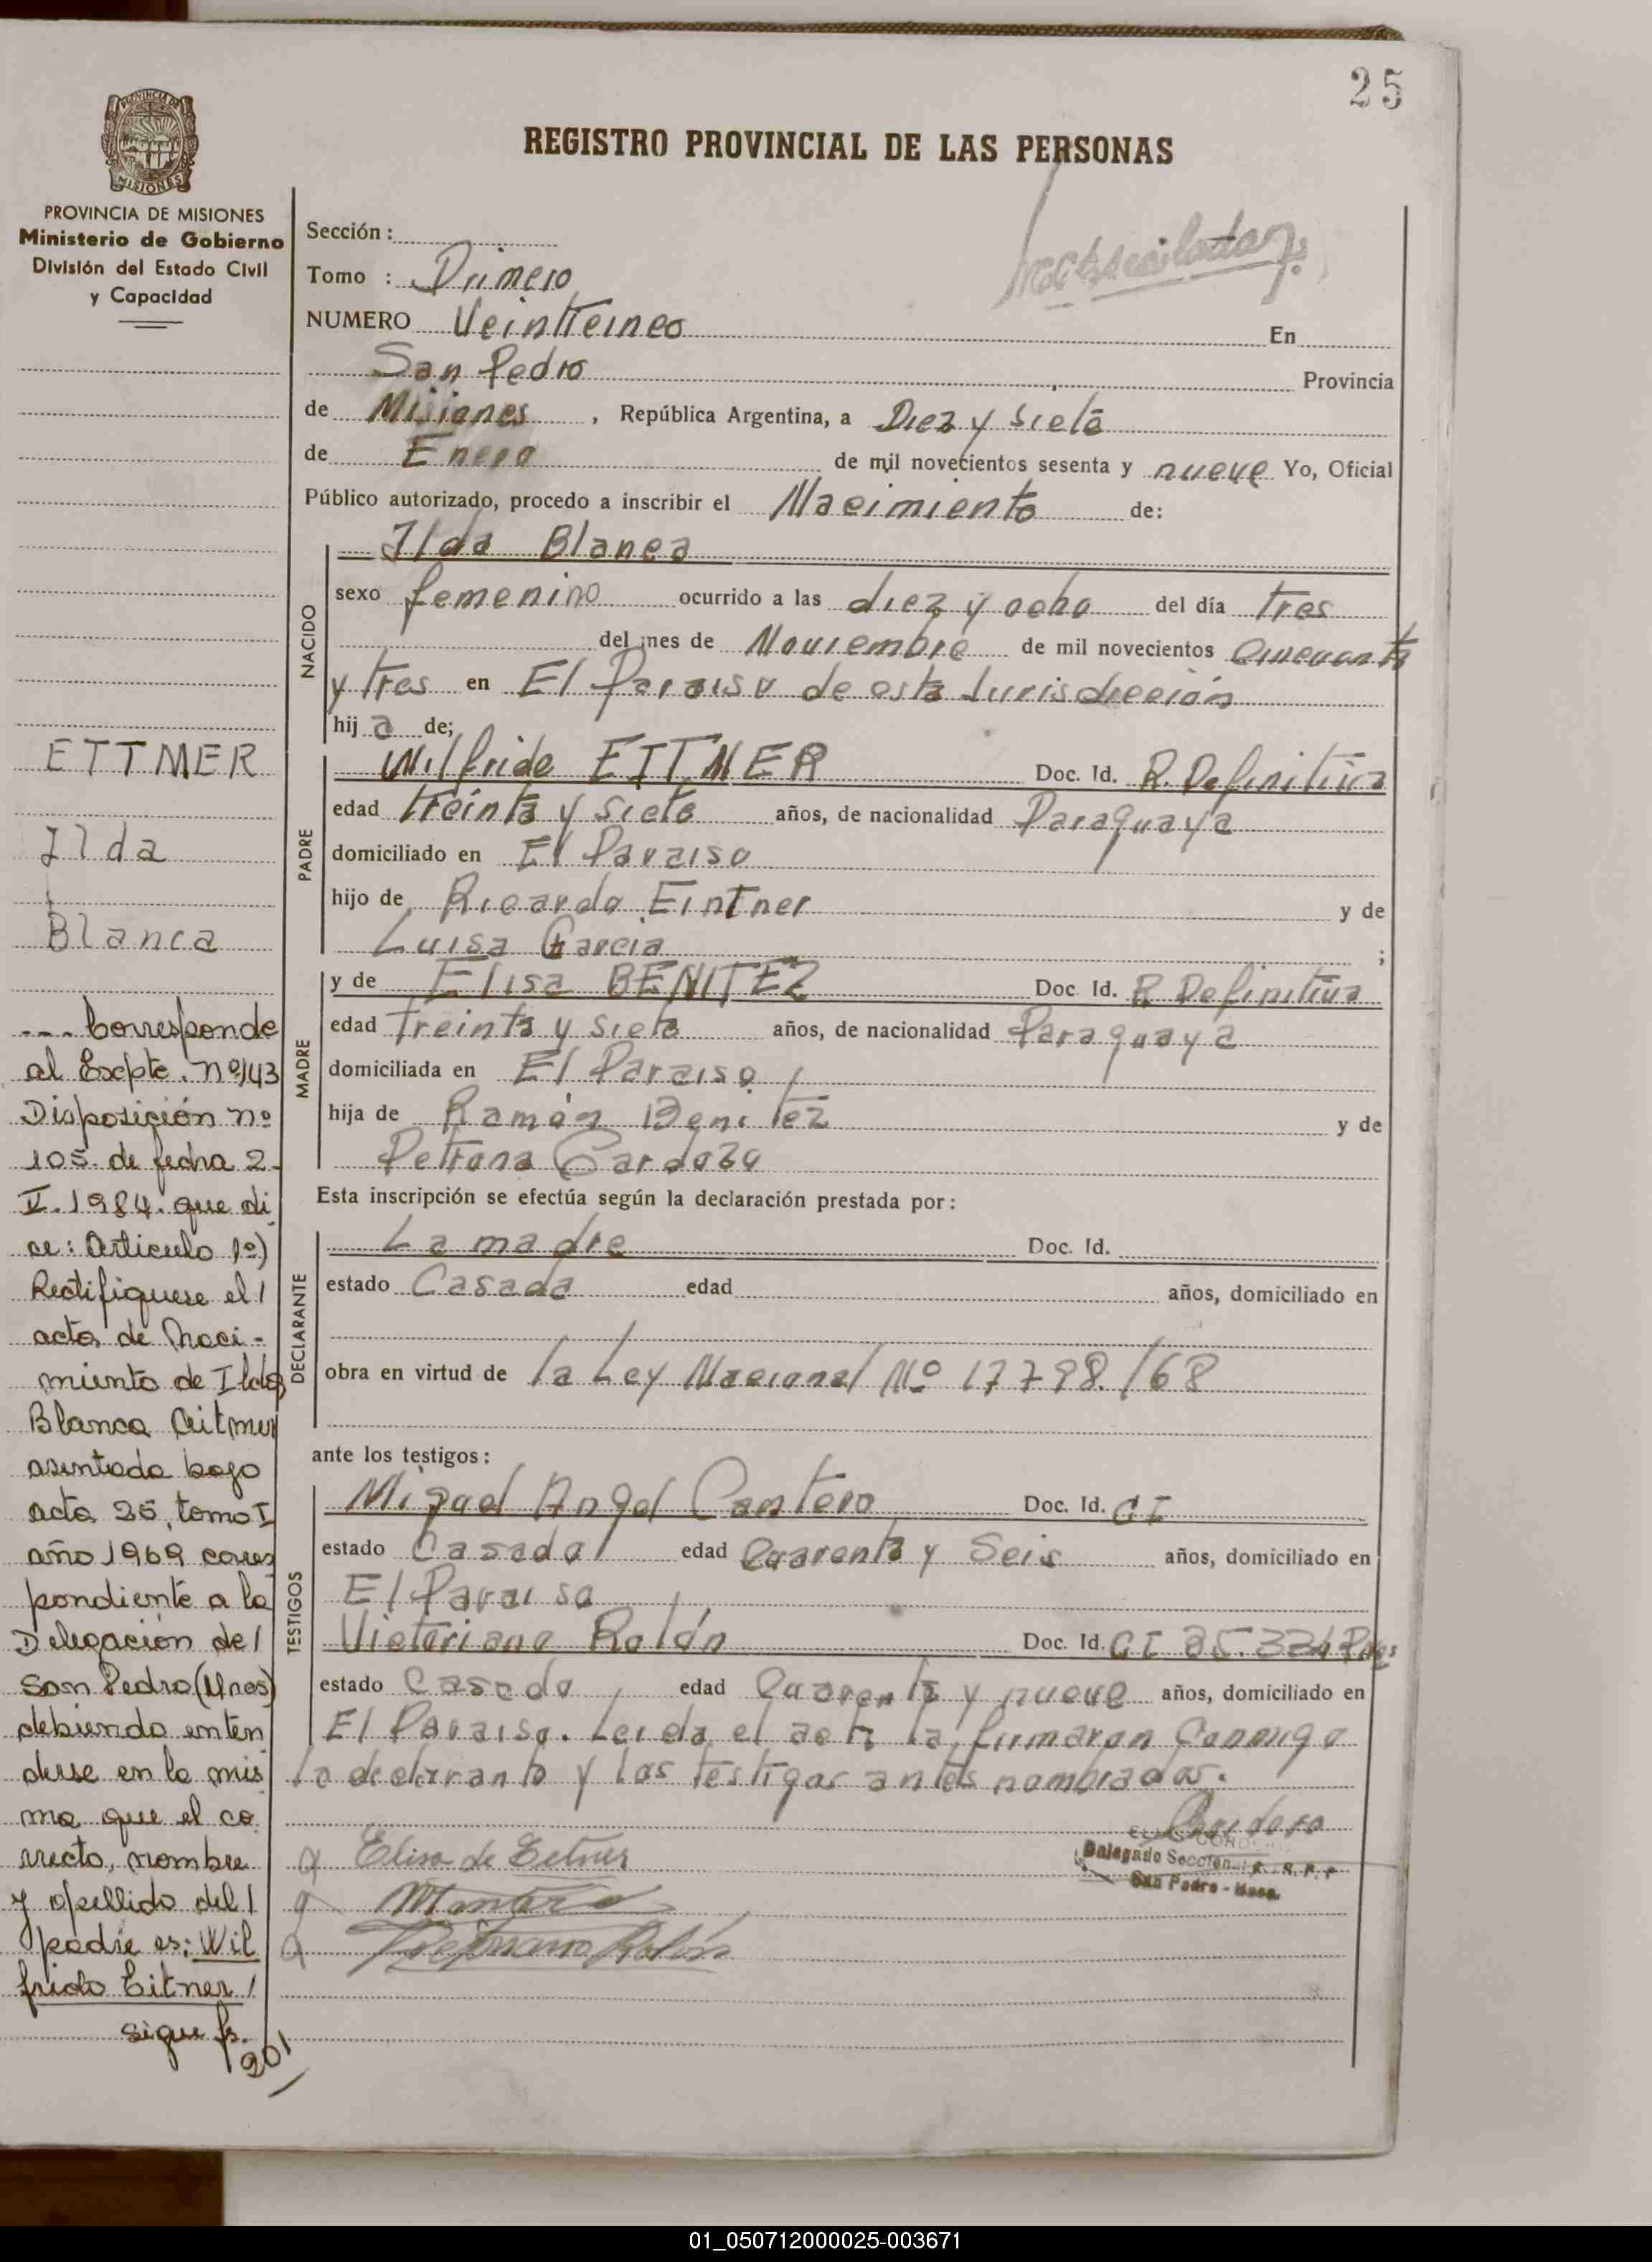 25
REGISTRO PROVINCIAL DE LAS PERSONAS
PROVINCIA DE MISIONES
PROVINCIA DE MISIONES
Ministerio de Gobierno
División del Estado Civil
y Capacidad
Sección :
Tomo : Primero
NUMERO Veinticinco En
San Pedro Provincia
de Misiones , República Argentina, a Diez y siete
de Enero de mil novecientos sesenta y nueve Yo, Oficial
Público autorizado, procedo a inscribir el Nacimiento de:
Ilda Blanca
NACIDO
sexo femenino ocurrido a las diez y ocho del día tres
del mes de Noviembre de mil novecientos cincuenta
y tres en El Paraiso de esta Jurisdicción
hij a de;
PADRE
Wilfrido EITNER Doc. Id. R. Definitiva
edad treinta y siete años, de nacionalidad Paraguaya
domiciliado en El Paraiso
hijo de Ricardo Eintner y de
Luisa Garcia ;
MADRE
y de Elisa BENITEZ Doc. Id. R Definitiva
edad treinta y siete años, de nacionalidad Paraguaya
domiciliada en El Paraiso
hija de Ramón Benitez y de
Petrona Cardozo
Esta inscripción se efectúa según la declaración prestada por :
DECLARANTE
La madre Doc. Id.
estado Casada edad años, domiciliado en
obra en virtud de la Ley Nacional Nº 17798./68
ante los testigos :
TESTIGOS
Miguel Angel Cantero Doc. Id. CI
estado Casado edad Cuarenta y Seis años, domiciliado en
El Paraiso
Victoriano Rolón Doc. Id. CI 35.334
estado Casado edad Cuarenta y nueve años, domiciliado en
El Paraiso. Leida el acta la firmaran Conmigo
la declarante y los testigos antes nombrados.
Elisa de Eitner
Delegado Seccional R. P. P.
San Pedro - Mnes.
Victoriano Rolón
ETTMER
Ilda
Blanca
--- Corresponde
al Expte. nº 143
Disposición nº
105. de fecha 2.
V. 1984. que di
ce: Articulo 1º)
Rectifiquese el /
acta de Naci-
miento de Ilda
Blanca Eitmer
asentada bajo
acta 25, tomo I
año 1969 corres
pondiente a la
Delegación de /
San Pedro (Mnes)
debiendo enten
derse en la mis
ma que el co
rrecto, nombre
y apellido del /
padre es: Wil
frido Eitner /
sigue fs.
201
01_050712000025-003671